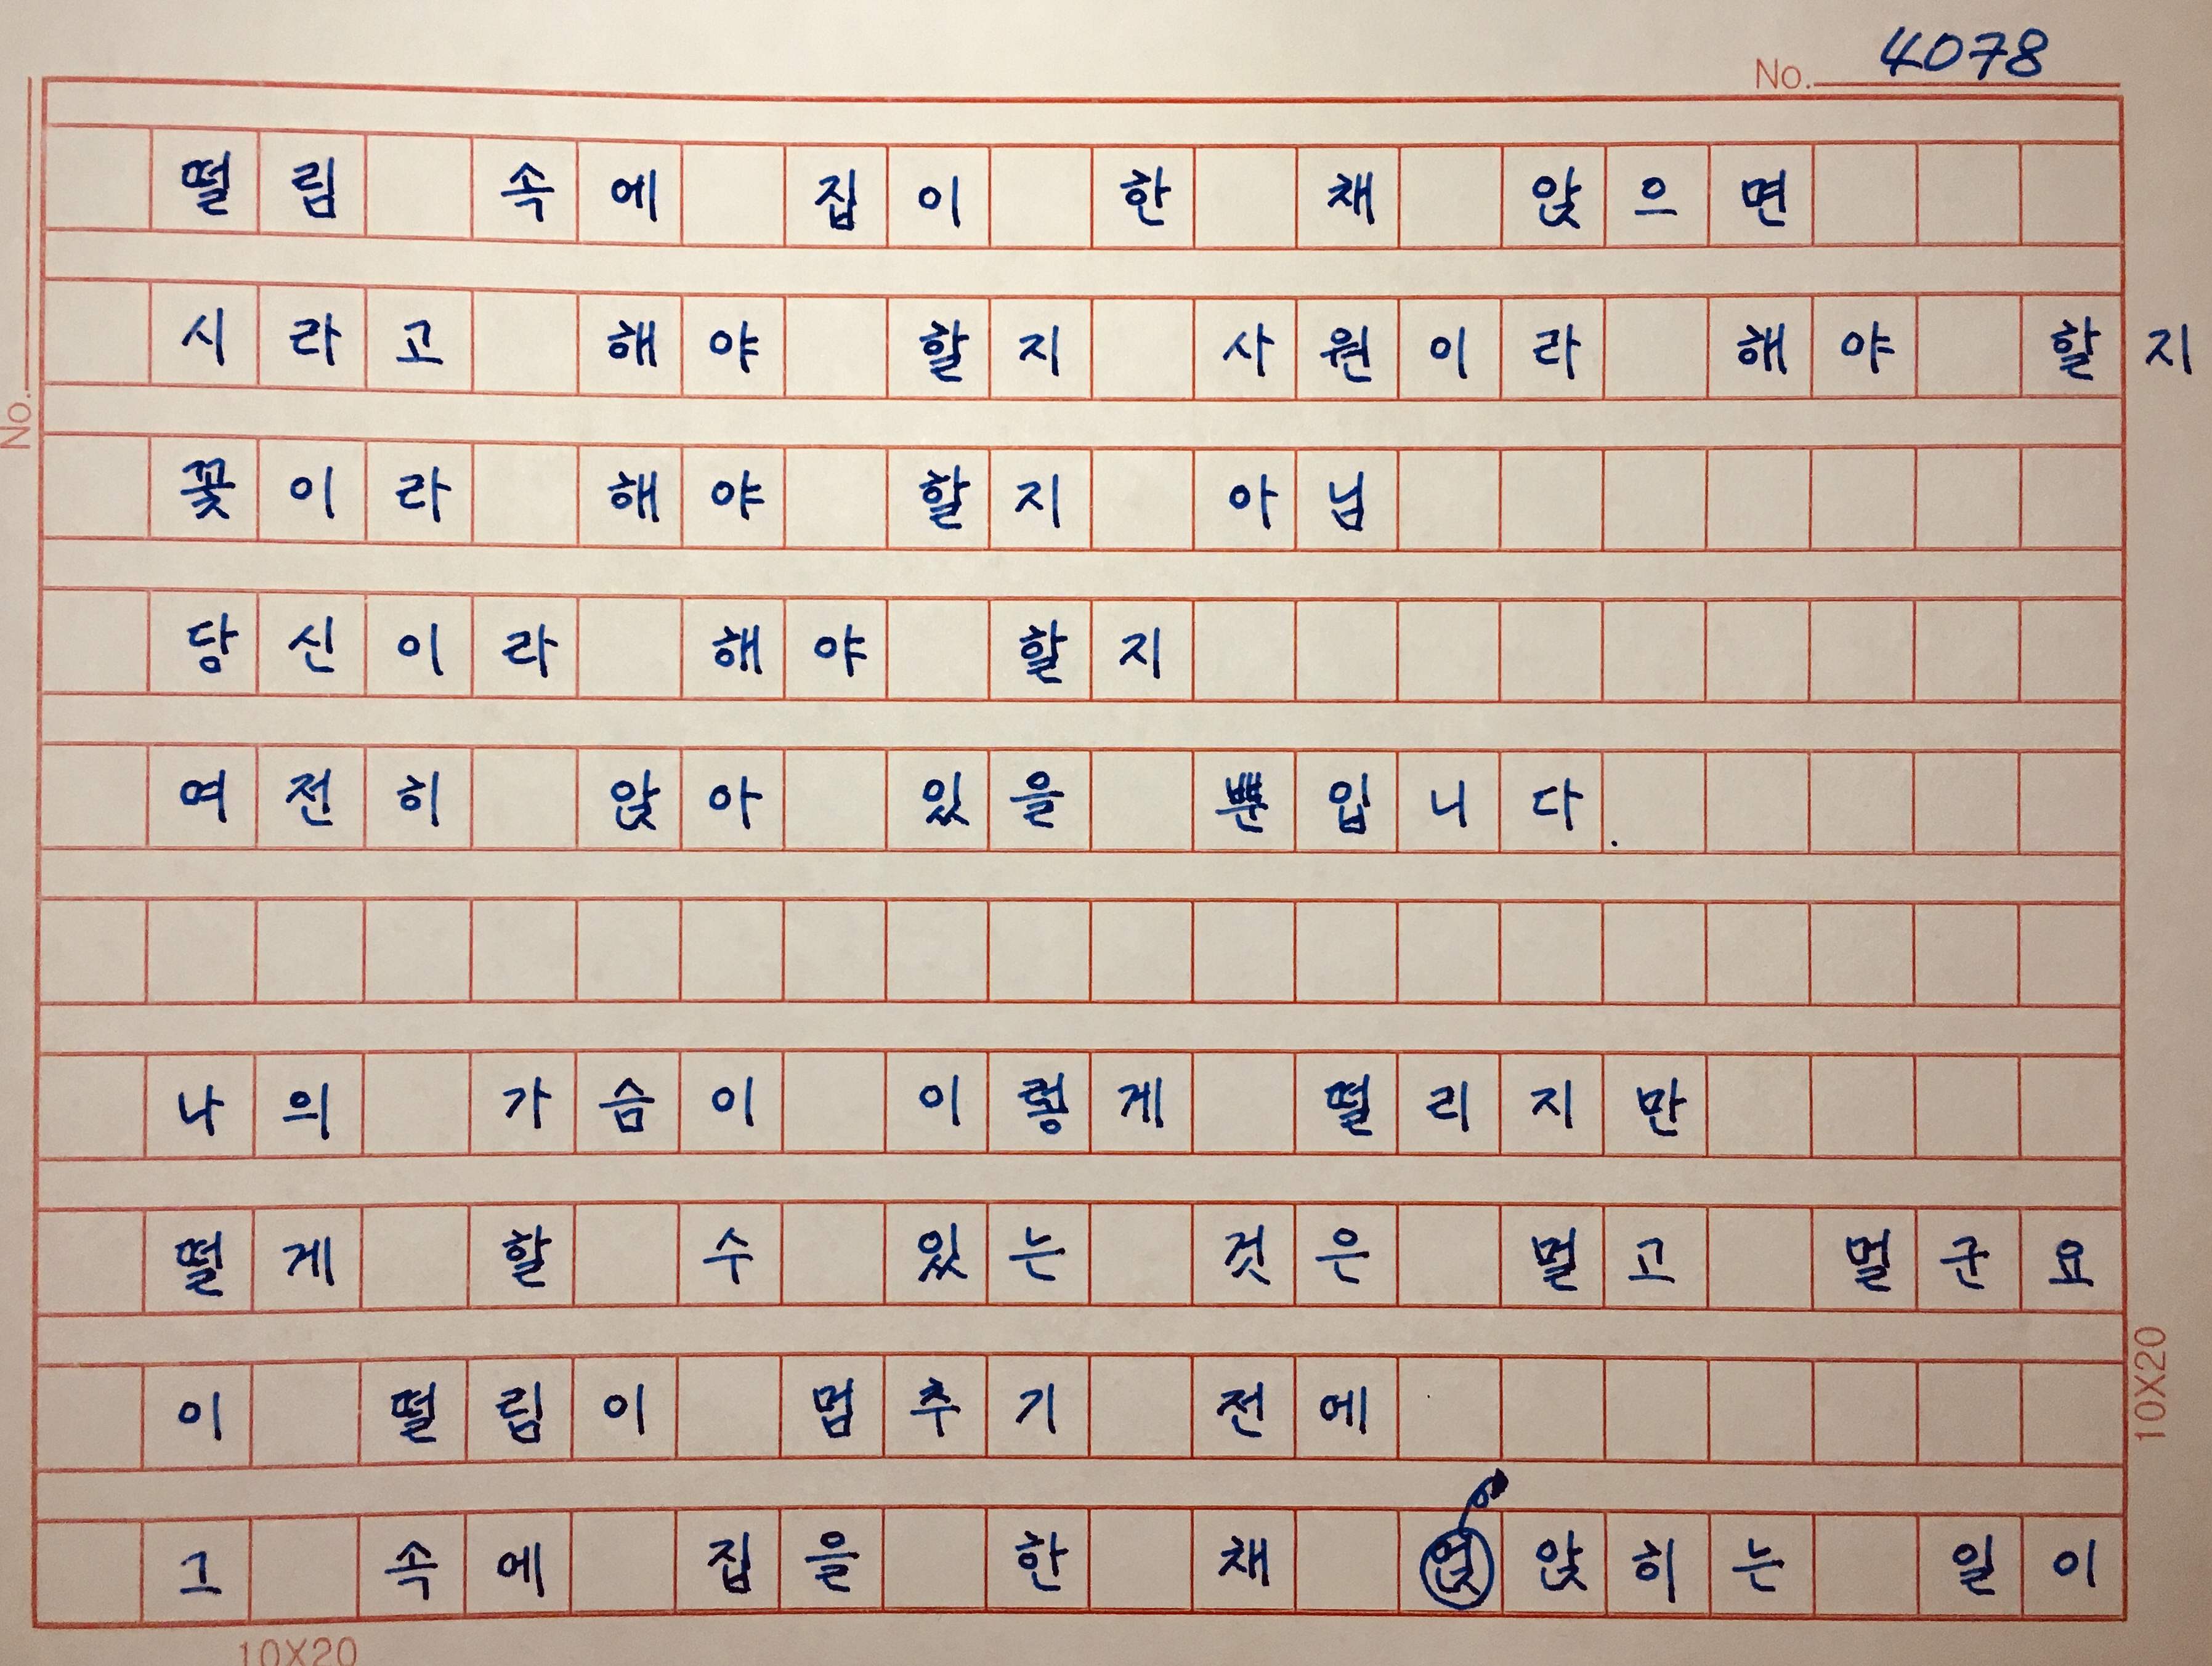 No. 4078
떨림 속에 집이 한 채 앉으면
시라고 해야 할지 사원이라 해야 할지
꽃이라 해야 할지 아님
당신이라 해야 할지
여전히 앉아 있을 뿐입니다.
나의 가슴이 이렇게 떨리지만
떨게 할 수 있는 것은 멀고 멀군요
이 떨림이 멈추기 전에
그 속에 집을 한 채 앉히는 일이
No.
10X20
10X20